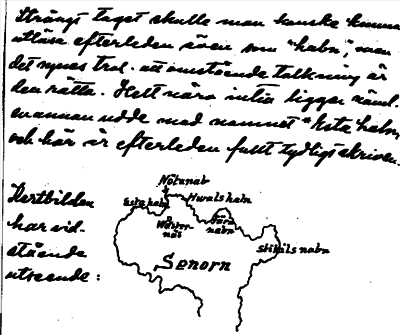 Strängt taget skulle man kanske kunna
utläsa efterleden även som "habn", man
det synes trol. att omstående tolkning är
den rätta. Helt nära intill ligger näml.
en annan udde med namnet "Esta habn,
och här är efterleden fullt tydligt skriven.
Kartbilden
har vid-
stående
utseende:
Nötanab
Hwals habn
Esta habn
Wäster-
näs
nabn
Skitåls nabn
Sørorn